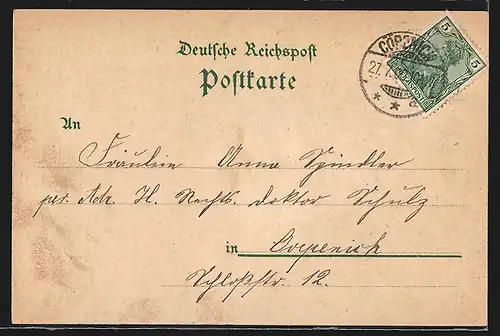 Deutsche Reichspost
Postkarte
CÖPENICK
27.7.
5
5
An
Fräulein Anna Spindler
per. Adr. H. Rechts. doktor Schulz
in Coepenick
Schloßstr. 12.